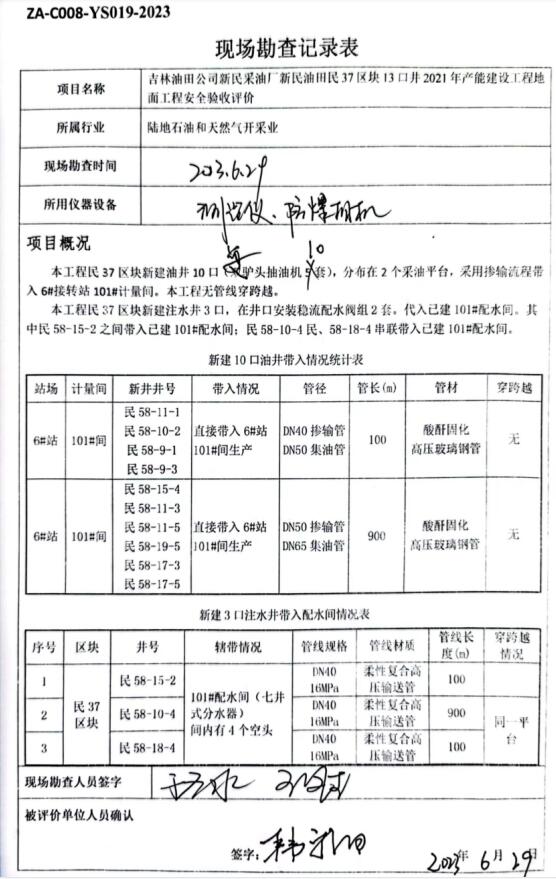 ZA-C008-YS019-2023
现场勘查记录表
项目名称
吉林油田公司新民采油厂新民油田民 37 区块 13 口井 2021 年产能建设工程地
面工程安全验收评价
所属行业
陆地石油和天然气开采业
现场勘查时间
203.6.29
所用仪器设备
测距仪、防爆相机
项目概况
本工程民 37 区块新建油井 10 口（驴头抽油机 10 套），分布在 2 个采油平台，采用掺输流程带
入 6#接转站 101#计量间。本工程无管线穿跨越。
本工程民 37 区块新建注水井 3 口，在井口安装稳流配水阀组 2 套。代入已建 101#配水间。其
中民 58-15-2 之间带入已建 101#配水间；民 58-10-4 民、58-18-4 串联带入已建 101#配水间。
新建 10 口油井带入情况统计表
站场 计量间 新井井号 带入情况 管径 管长(m) 管材 穿跨越
民 58-11-1
民 58-10-2
民 58-9-1
民 58-9-3
6#站 101#间 直接带入 6#站
101#间生产
DN40 掺输管
DN50 集油管
100
酸酐固化
高压玻璃钢管
无
民 58-15-4
民 58-11-3
民 58-11-5
民 58-19-5
民 58-17-3
民 58-17-5
6#站 101#间 直接带入 6#站
101#间生产
DN50 掺输管
DN65 集油管
900
酸酐固化
高压玻璃钢管
无
新建 3 口注水井带入配水间情况表
序号 区块 井号 辖带情况 管线规格 管线材质 管线长
度(m)
穿跨越
情况
1 民 58-15-2 DN40
16MPa
柔性复合高
压输送管
100
民 37
区块
101#配水间（七井
式分水器）
间内有 4 个空头
2 民 58-10-4 DN40
16MPa
柔性复合高
压输送管
900
同一平
台
3 民 58-18-4 DN40
16MPa
柔性复合高
压输送管
100
现场勘查人员签字
被评价单位人员确认
签字：
2023年 6 月 29日